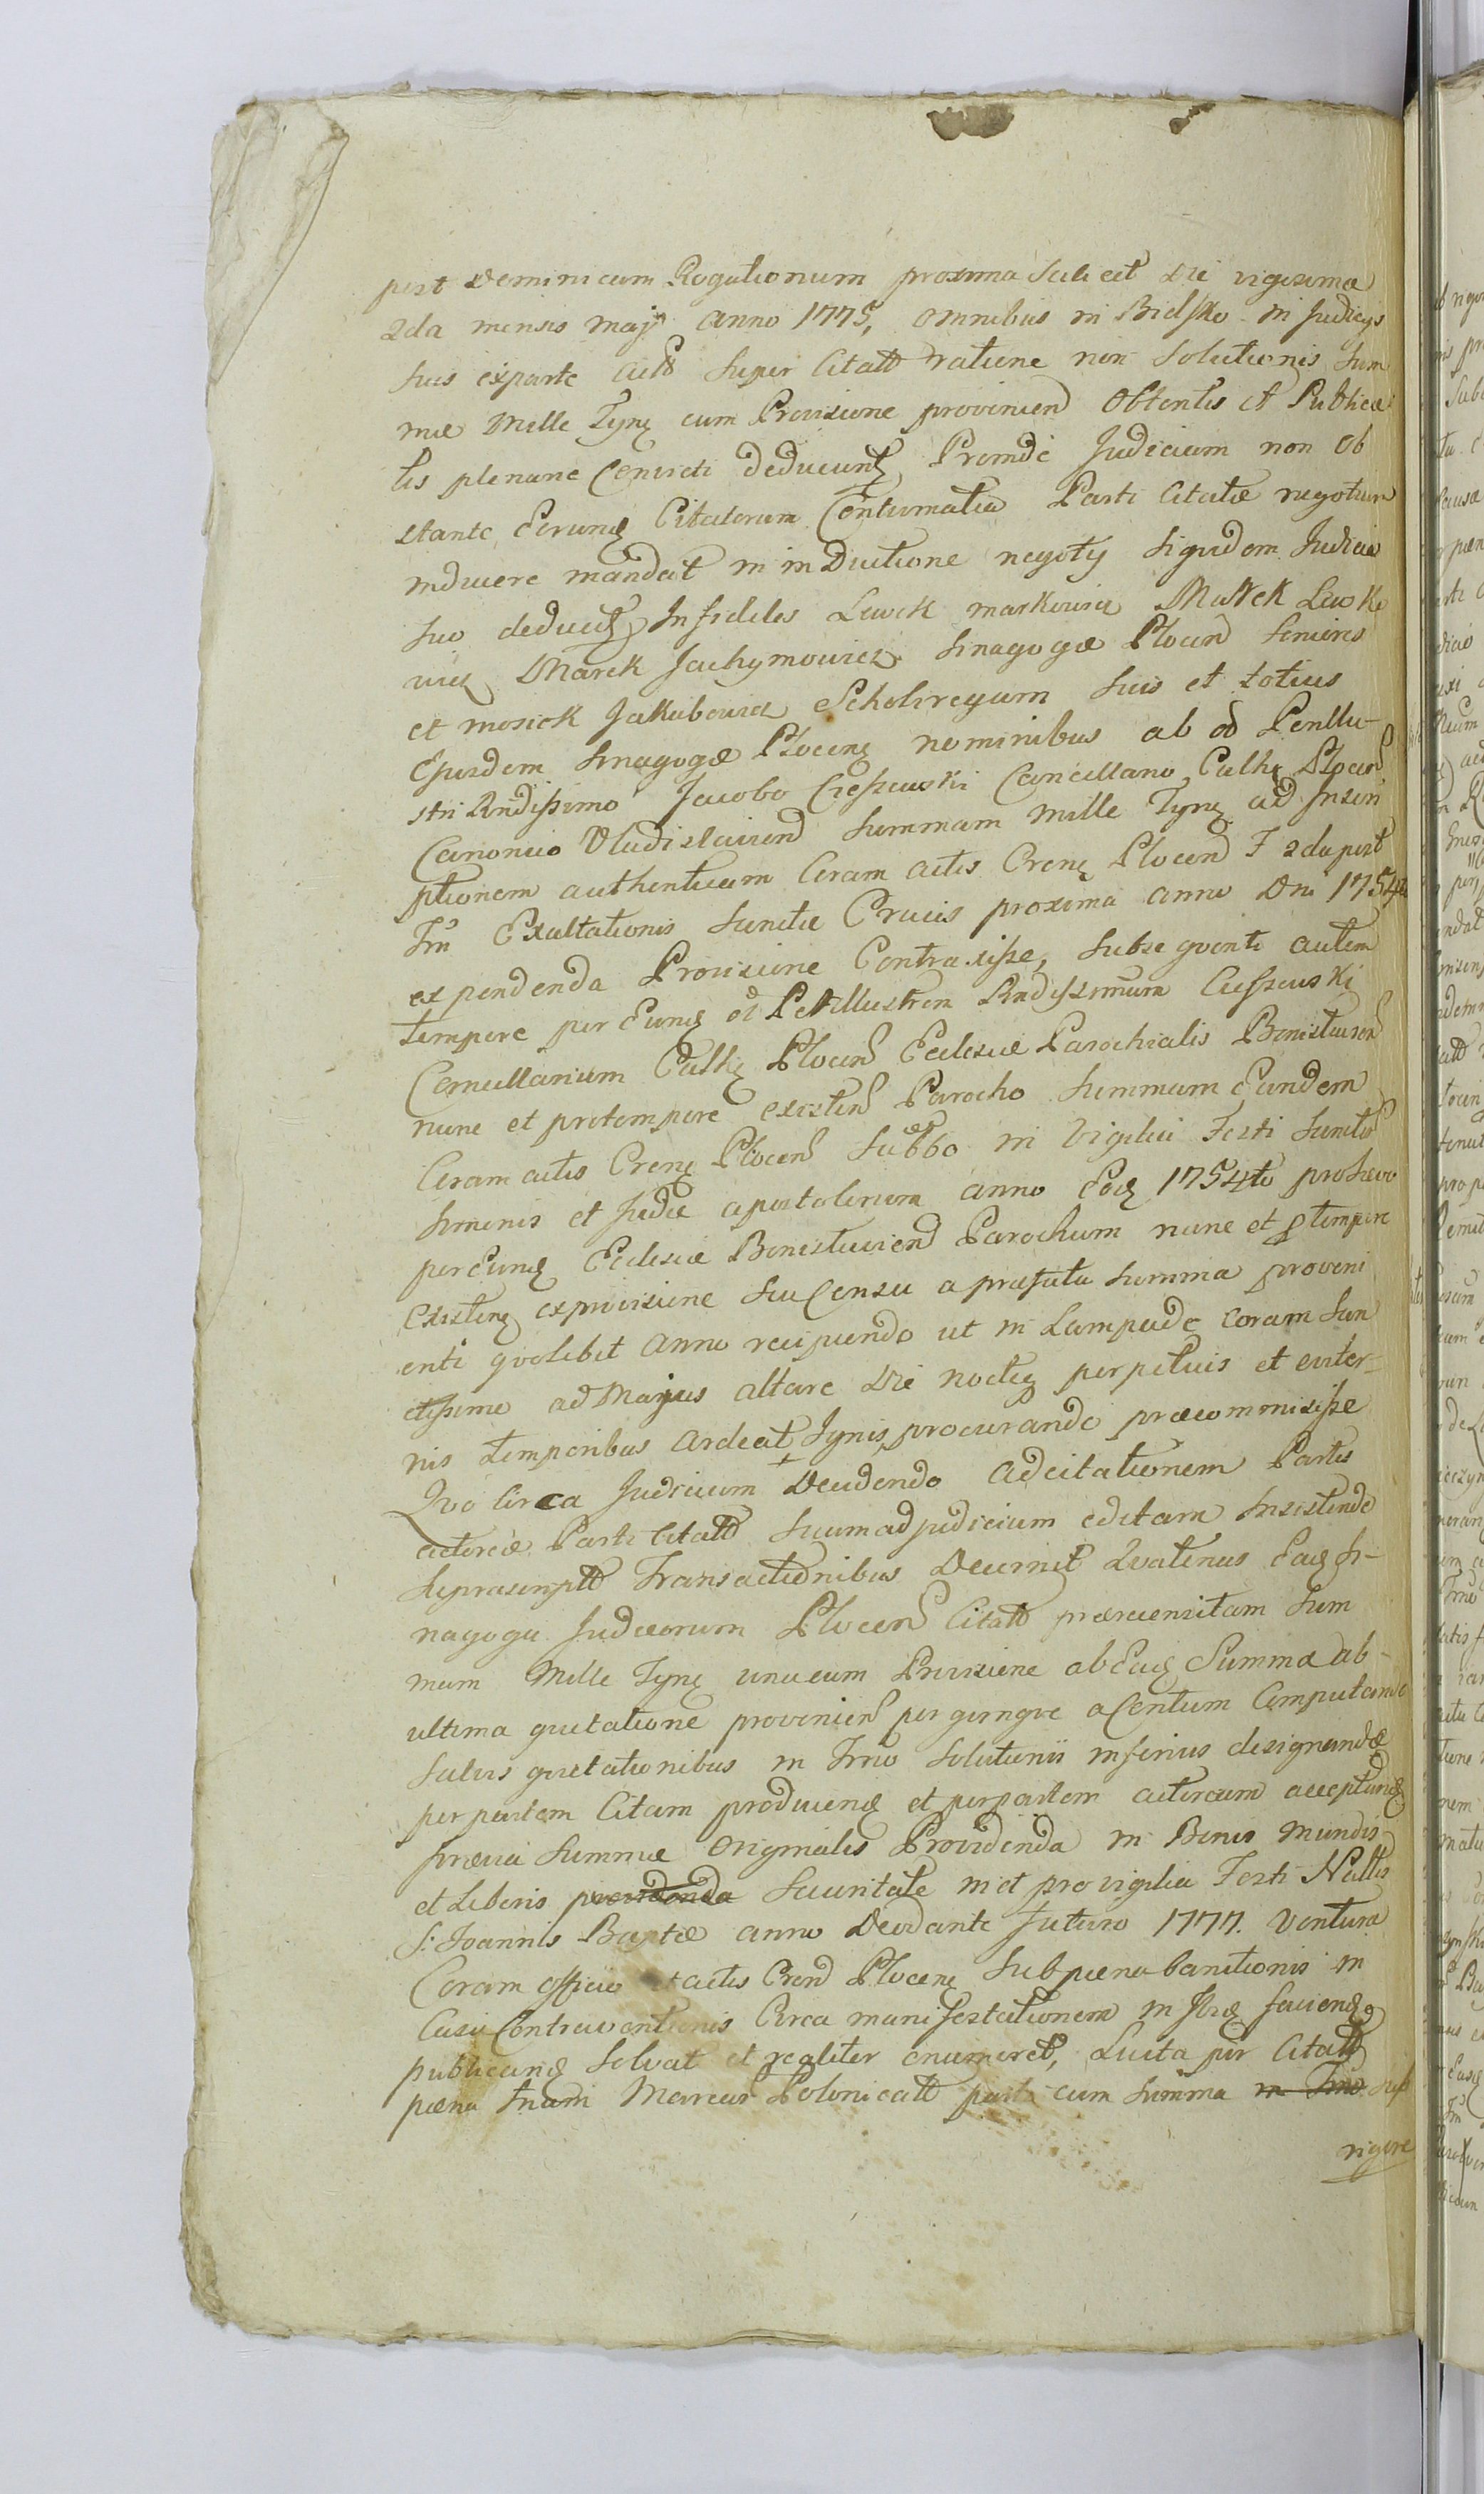 post Dominicam Rogationum proxima scilicet die vigesima
2da mensis maji anno 1775, omnibus in Bielsko in Judicijs
suis exparte act super Citatt ratione non Solutionis Sum
mæ Mille Tynf cum Provisione provenien obtentis et Publica
tis plenarie Convicti deducunt, Proinde Judicium non ob
stante Eorunq Citatorum Contumatia Parti Citatæ negotium
inducere mandat in inDuctione negotij siquidem Judicio
suo deducit Infideles Lewek markowicz Marek Lewko
wicz Marek Jachymowicz Sinagogæ Plocen Seniores
et mosiek Jakubowicz Scholiregum suis et totius
Ejusdem Sinagogæ Plocens nominibus ab od Perillu-
stri Rndissimo Jacobo Cieszewski Cancellario Cathis Plocen
Canonico Vladislavien Summam Mille Tynf ad Inscri
ptionem authenticam Coram actis Crens Plocen F 2da post
Fm Exaltationis Sanctæ Crucis proxima anno Dni 1754
expendenda Provisione Contraxisse, Subsequenti autem
tempore per Eunq od Perillustrem Rndissimum Cieszewski
Cancellarium Cathis Plocen Ecclesiæ Parochialis Bonislavien
nunc et protempore existen Parocho Summam Eandem
Coram actis Crens Plocen Sabbo in Vigilia Festi Sanctor
Simonis et Judæ apostolorum anno Eoq 1754to
per Eunq Ecclesiæ Bonislavien Parochum nunc et ptempore
existens exprovisione seu Censu a præfata Summa proveni
enti quolibet anno recipiendo ut in Lampade coram San
ctissimo ad Majus altare die nocteq perpetuis et eviter-
nis temporibus ardeat Ignis, procurando præcommisisse
Quo Circa Judicium + Decidendo adcitationem Partis
actoreæ Parti Citatt suum adjudicium editam Insistendo
suprascriptt Transactionibus Decernit Quatenus Eaq Si-
nagoga Judæorum Plocen Citatt præcensitam Sum
mam Mille Tynf unacum Provisione ab Eaq Summa ab-
ultima quietatione provenien per quinque a Centum Computando
Salvis quietationibus in Fmo Solutionis inferius designandæ
per partem Citam producens et perpartem actoream acceptans
prævia Summæ Originalis Providenda in Bonis mundis
et Liberis providenda Securitate in et pro vigilia Festi Nattis
S: Joannis Baptæ anno Deodante futuro 1777. Ventura
Coram officio et actis Cren Plocens Sub pæna banitionis in
Casu Contraventionis Circa manifestationem faciens
publicans Solvat et realiter enumeret, Luita per Citatt
pæna Marcar Polonicatt cum Summa in Fmo
vigore